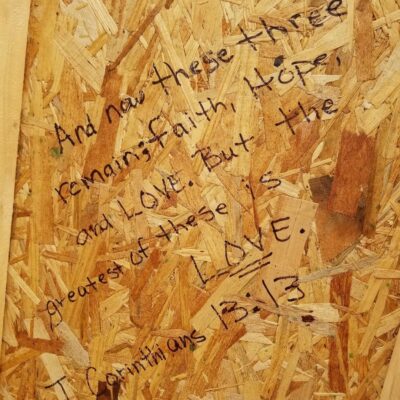 And now these three
remain; faith, Hope,
and LOVE. But the
greatest of these is
LOVE.
I Corinthians 13:13